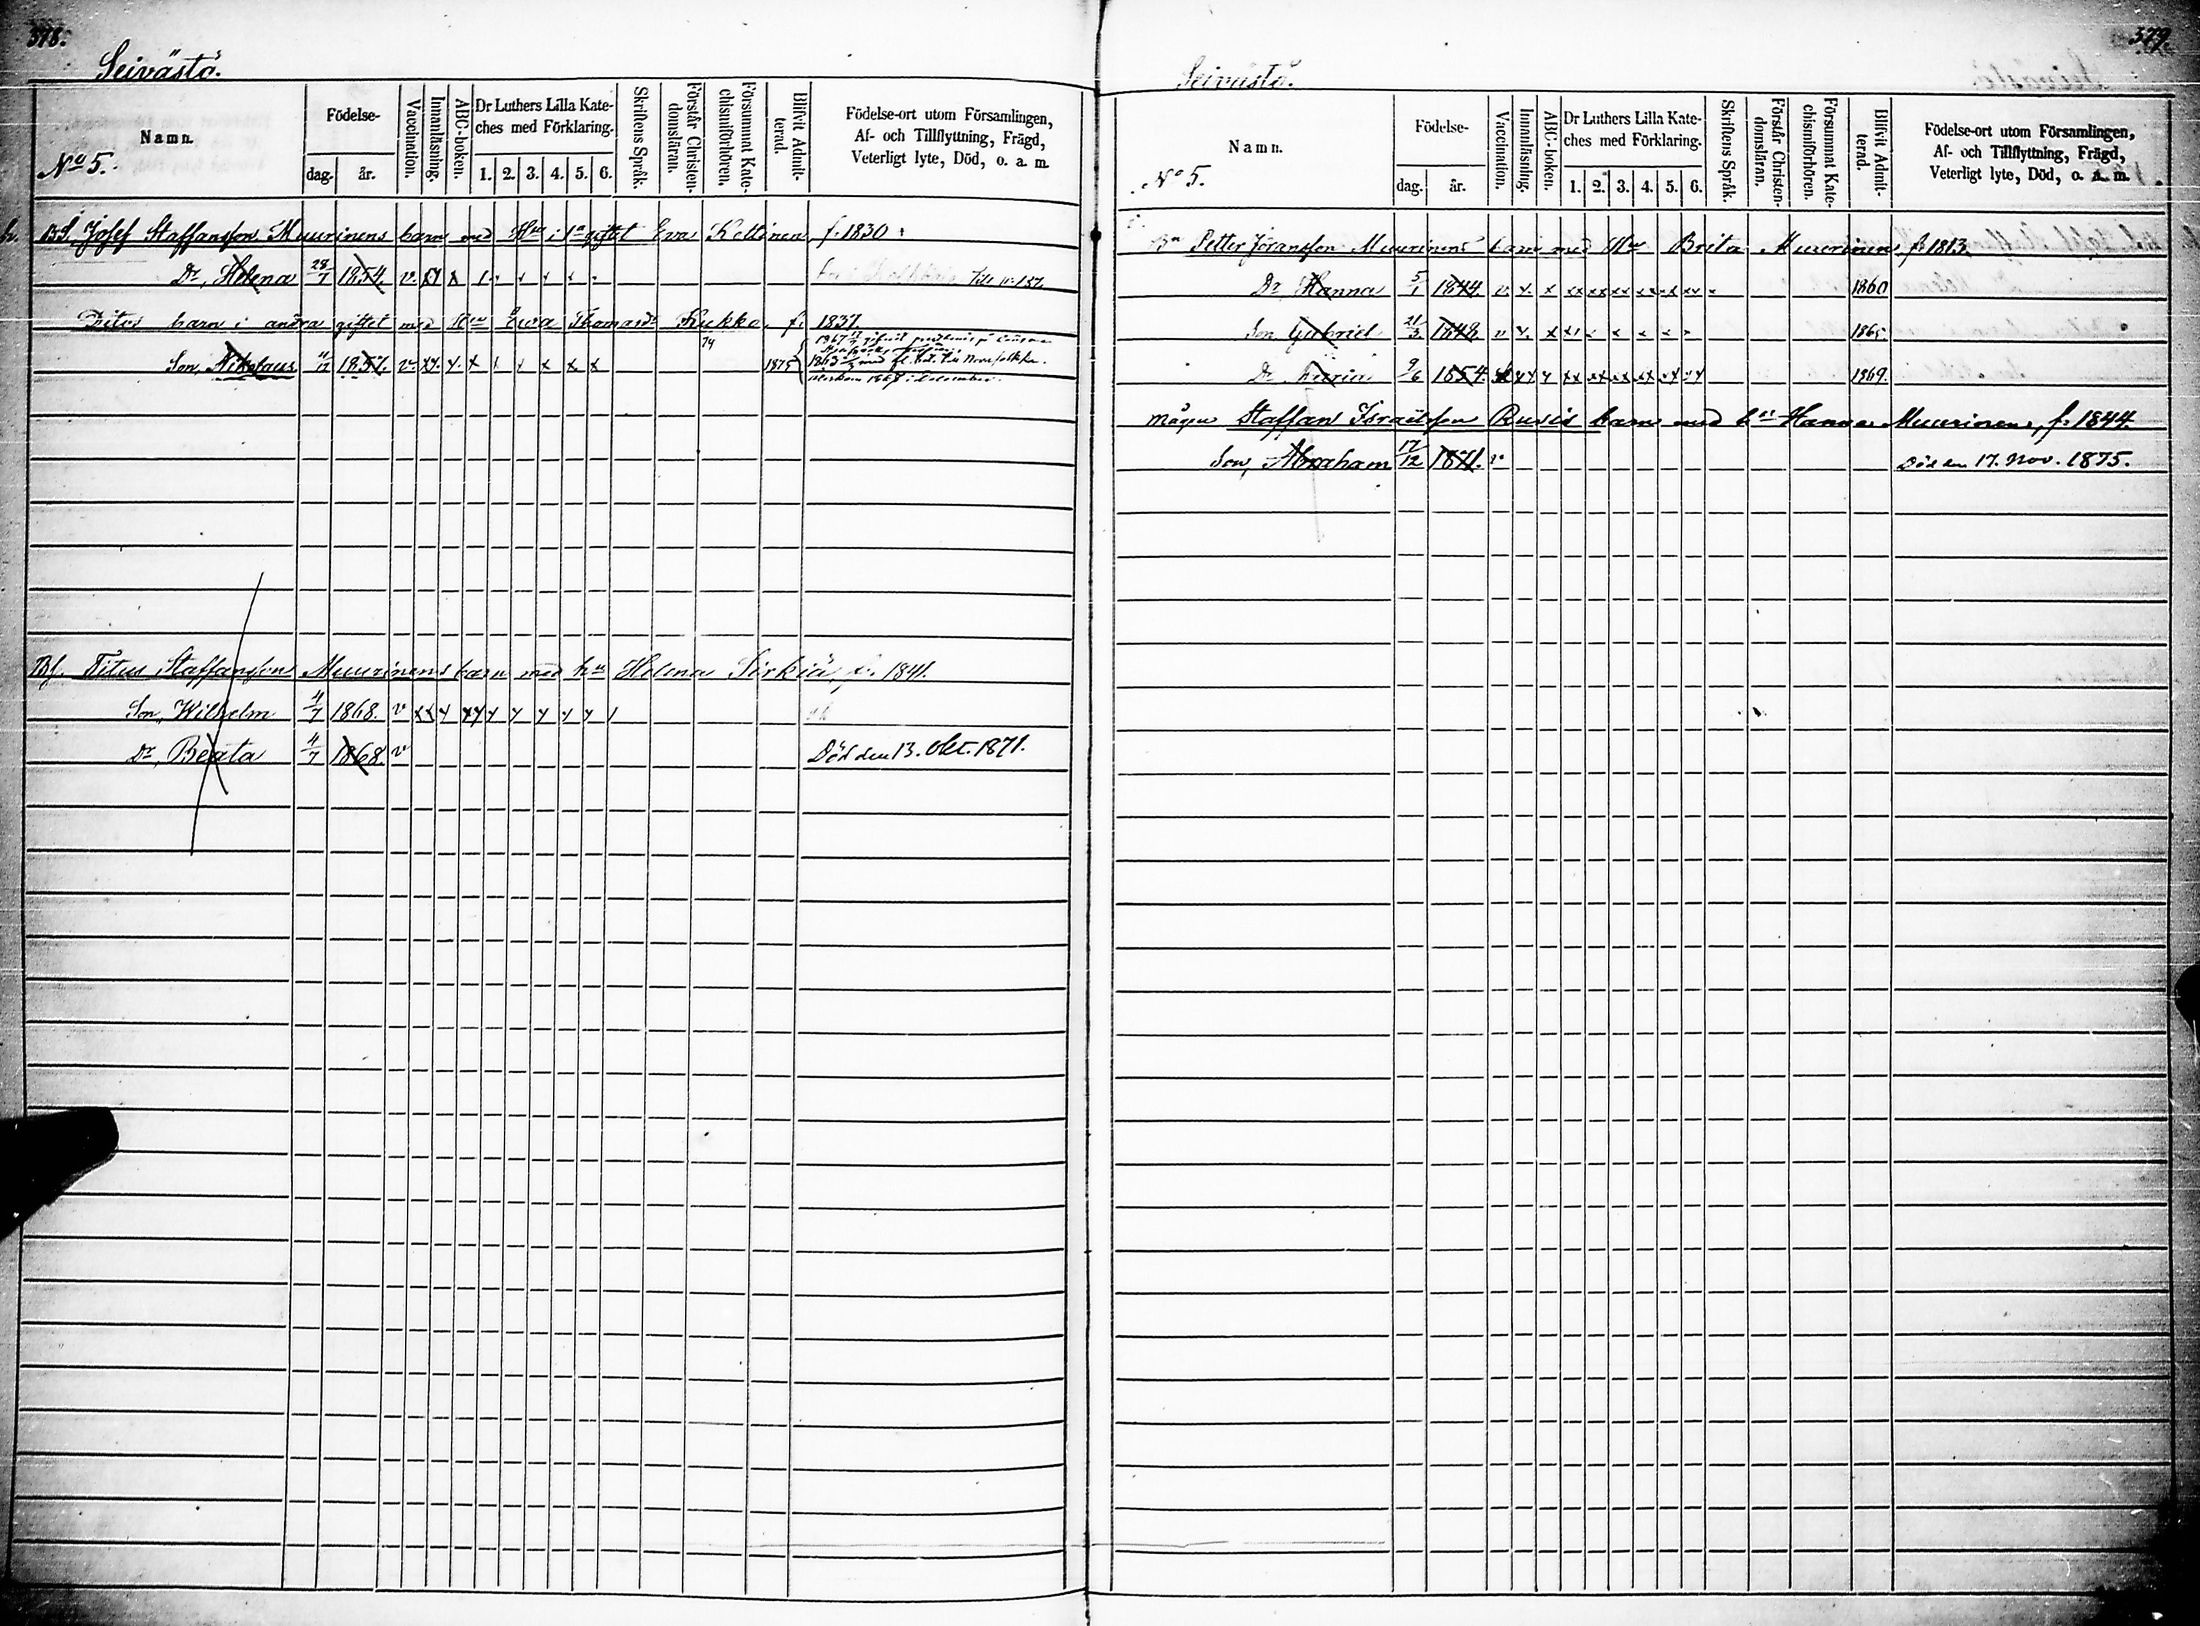 378.
Seivästö.
Namn.
No 5.
Födelse-
dag. år.
Vaccination.
Innanläsning.
ABC-boken.
Dr Luthers Lilla Kate-
ches med Förklaring.
1. 2. 3. 4. 5. 6.
Skriftens Språk.
Förstår Christen-
domsläran.
Försummat Kate-
chismiförhören.
Blifvit Admit-
terad.
Födelse-ort utom Församlingen,
Af- och Tillflyttning, Frägd,
Veterligt lyte, Död, o. a. m.
Josef Staffansson Muurinens barn med Hu i 1a giftet Eva Kottinen, f. 1830
Dr, Helena 28/7 1854. v. x 1. x x x x
Ditos barn i andra giftet med Hu Ewa Thomasdr Kukko, f. 1837
Son, Nikolaus 4/12 1857. v. xx. x. x x x x x x 74 1875
Bf. Titus Staffanssons Muurinens barn med hu Helena Pirkiä, f. 1841.
Son, Wilhelm 4/7 1868. v xx x xx x x x x x
Dr, Beata 4/7 1868. v Död den 13. Okt. 1871.
379.
Seivästö.
Namn.
No 5.
Födelse-
dag. år.
Vaccination.
Innanläsning.
ABC-boken.
Dr Luthers Lilla Kate-
ches med Förklaring.
1. 2. 3. 4. 5. 6.
Skriftens Språk.
Förstår Christen-
domsläran.
Försummat Kate-
chismiförhören.
Blifvit Admit-
terad.
Födelse-ort utom Församlingen,
Af- och Tillflyttning, Frägd,
Veterligt lyte, Död, o. a. m.
Petter Jöransson Muurinens barn med Hu Brita Muurinen f. 1813.
Dr, Hanna 5/1 1844. v. x. x xx xx xx xx xx xx x 1860
Son, Gabriel 21/3. 1848. v x. x xx x x x x x 1865
Dr, Maria 9/6 1854. xx x xx xx xx xx xx xx 1869.
Mågen Staffan Israëlsson Rusis barn med hu Hanna Muurinen, f. 1844.
Son, Abraham 17/12 1871. v Död den 17. Nov. 1875.